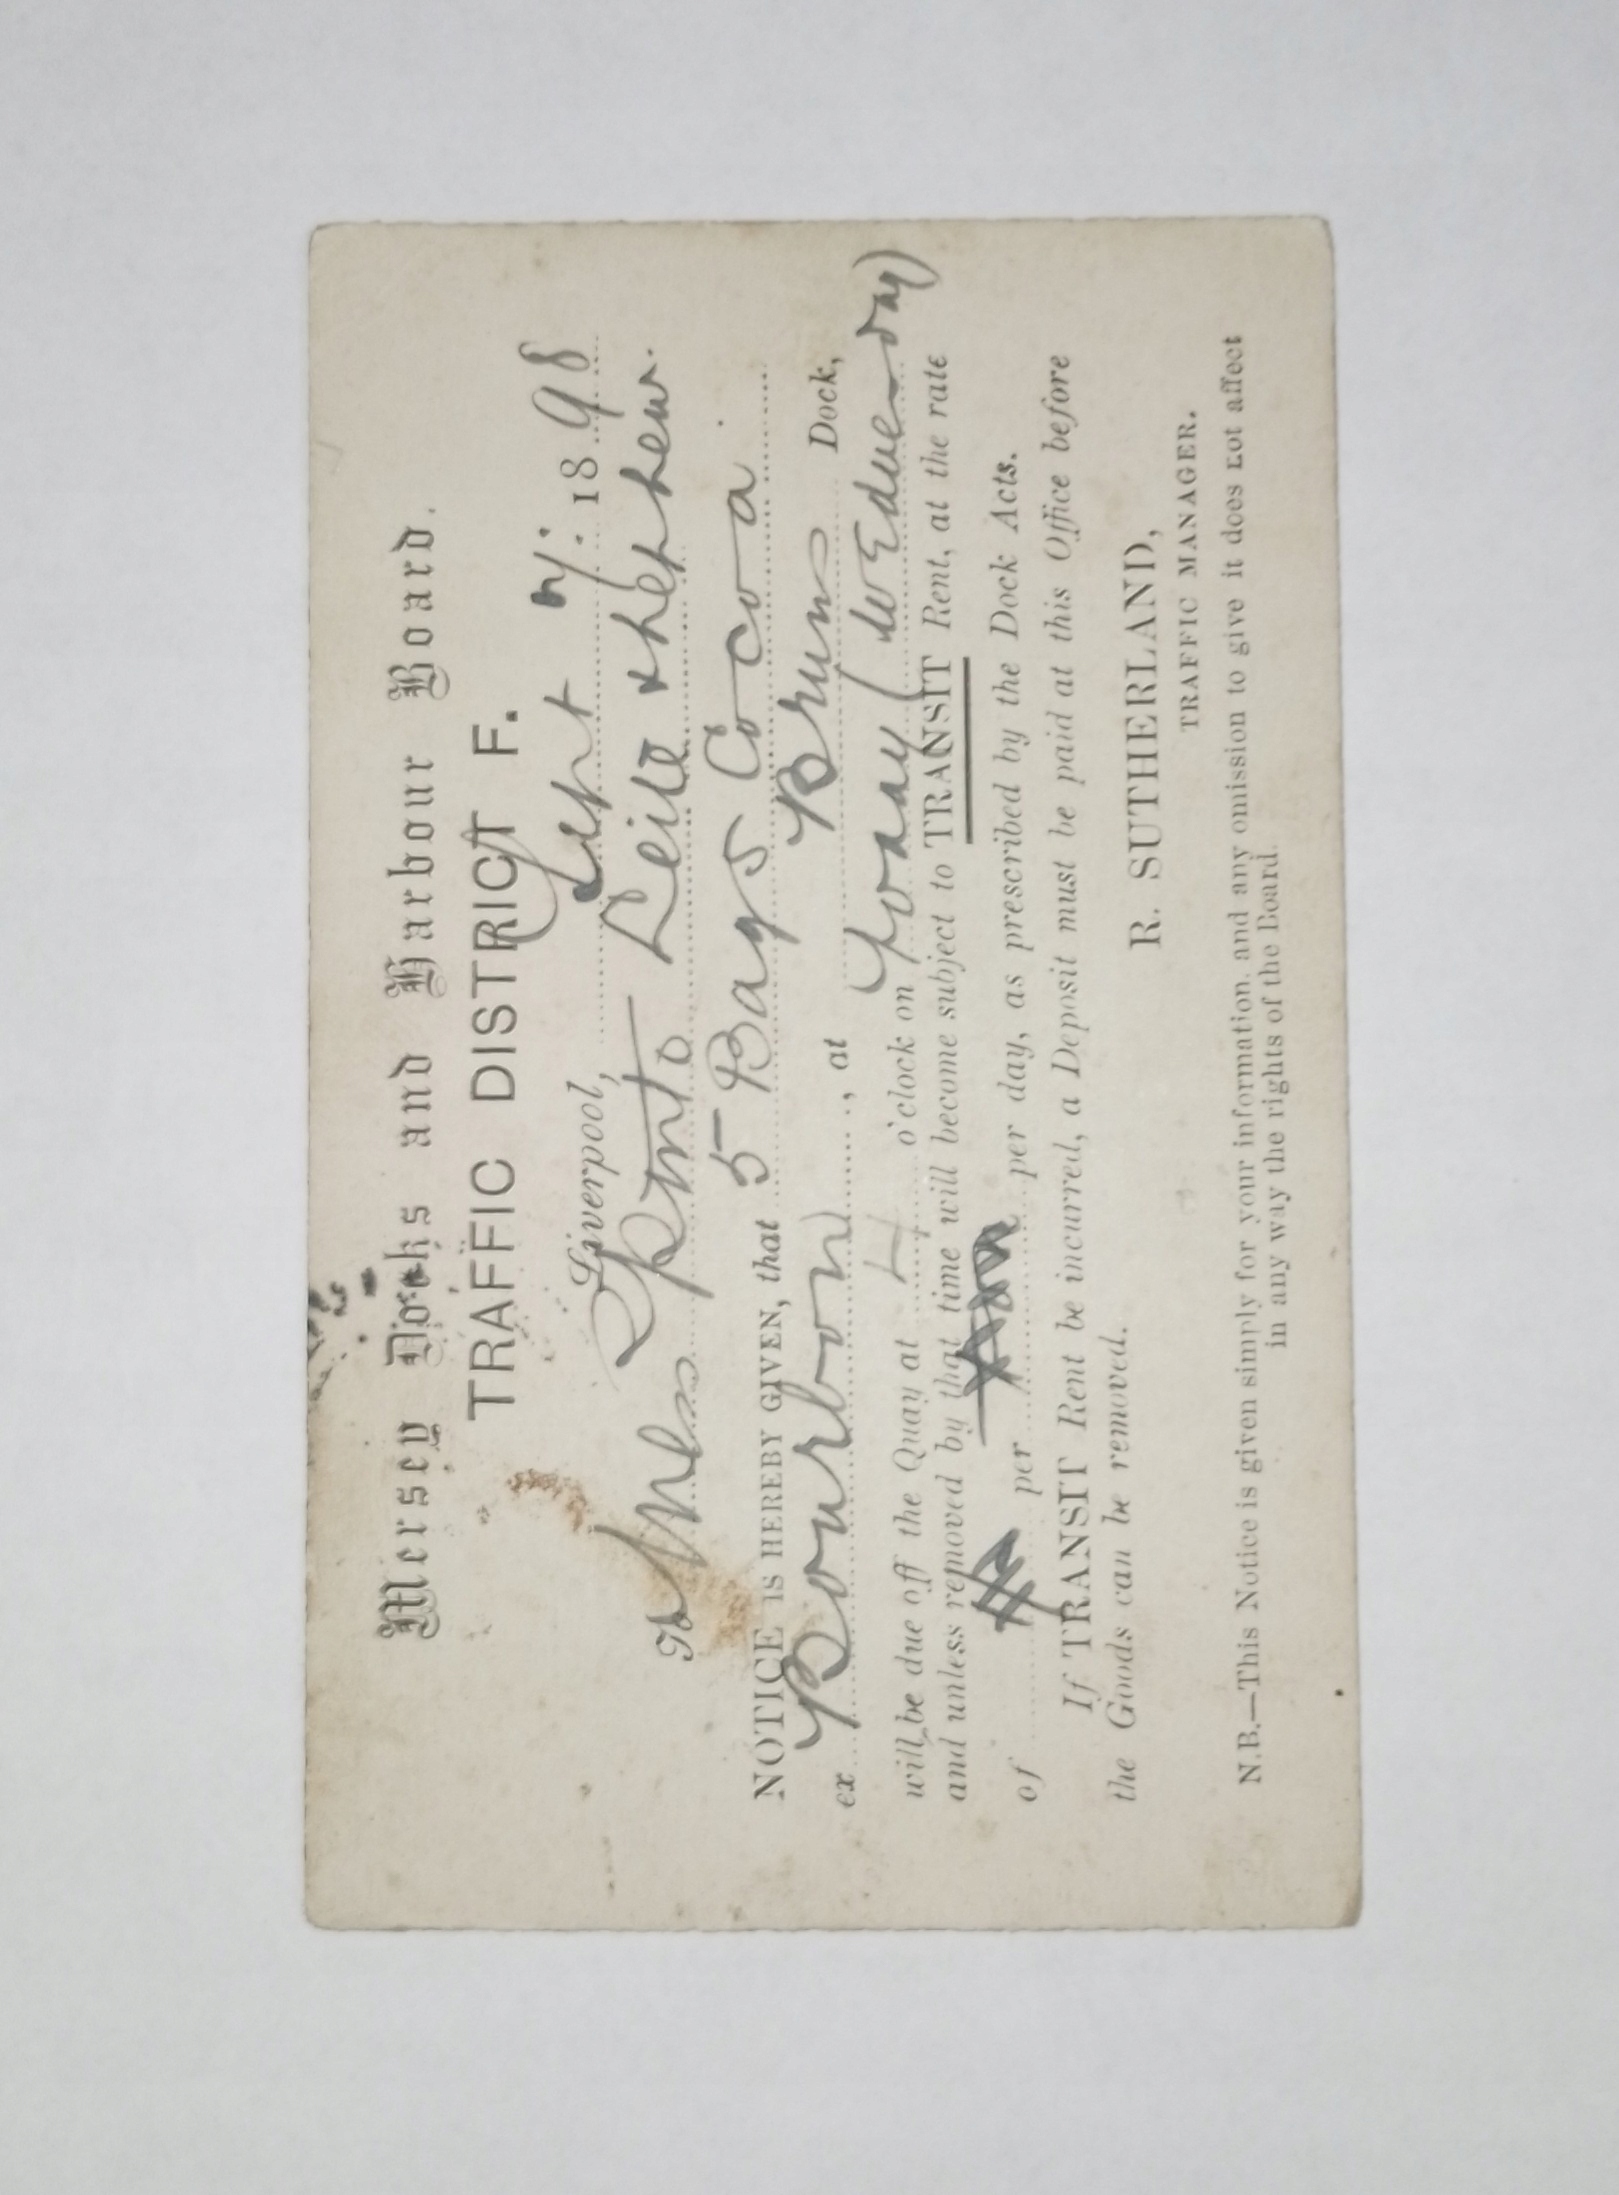 Mersey Docks and Harbour Board.
TRAFFIC DISTRICT F.
Liverpool, Sept 7: 1898
To Mess Pinto Leite & Nephew.
NOTICE IS HEREBY GIVEN, that 5 Bags Cocoa
ex Bourbon, at Bruns Dock,
will be due off the Quay at 4 o'clock on Today (Wednesday)
and unless removed by that time will become subject to TRANSIT Rent, at the rate
of per per day, as prescribed by the Dock Acts.
If TRANSIT Rent be incurred, a Deposit must be paid at this Office before
the Goods can be removed.
R. SUTHERLAND,
TRAFFIC MANAGER.
N.B.—This Notice is given simply for your information, and any omission to give it does not affect
in any way the rights of the Board.